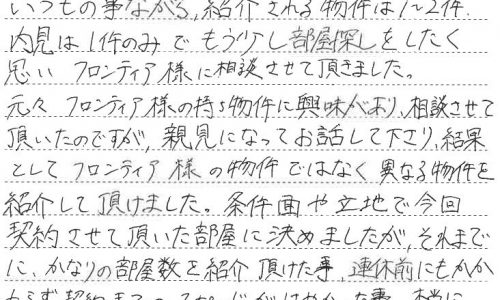 いつもの事ながら,紹介される物件は1〜2件.
内見は1件のみでもう少し部屋探しをしたく
思い フロンティア様に相談させて頂きました。
元々フロンティア様の持つ物件に興味があり,相談させて
頂いたのですが,親見になってお話して下さり,結果
としてフロンティア様の物件ではなく異なる物件を
紹介して頂けました。条件面や立地で今回
契約させて頂いた部屋に決めましたが,それまで
に,かなりの部屋数を紹介頂けた事,連休前にもかか
わらず契約まで